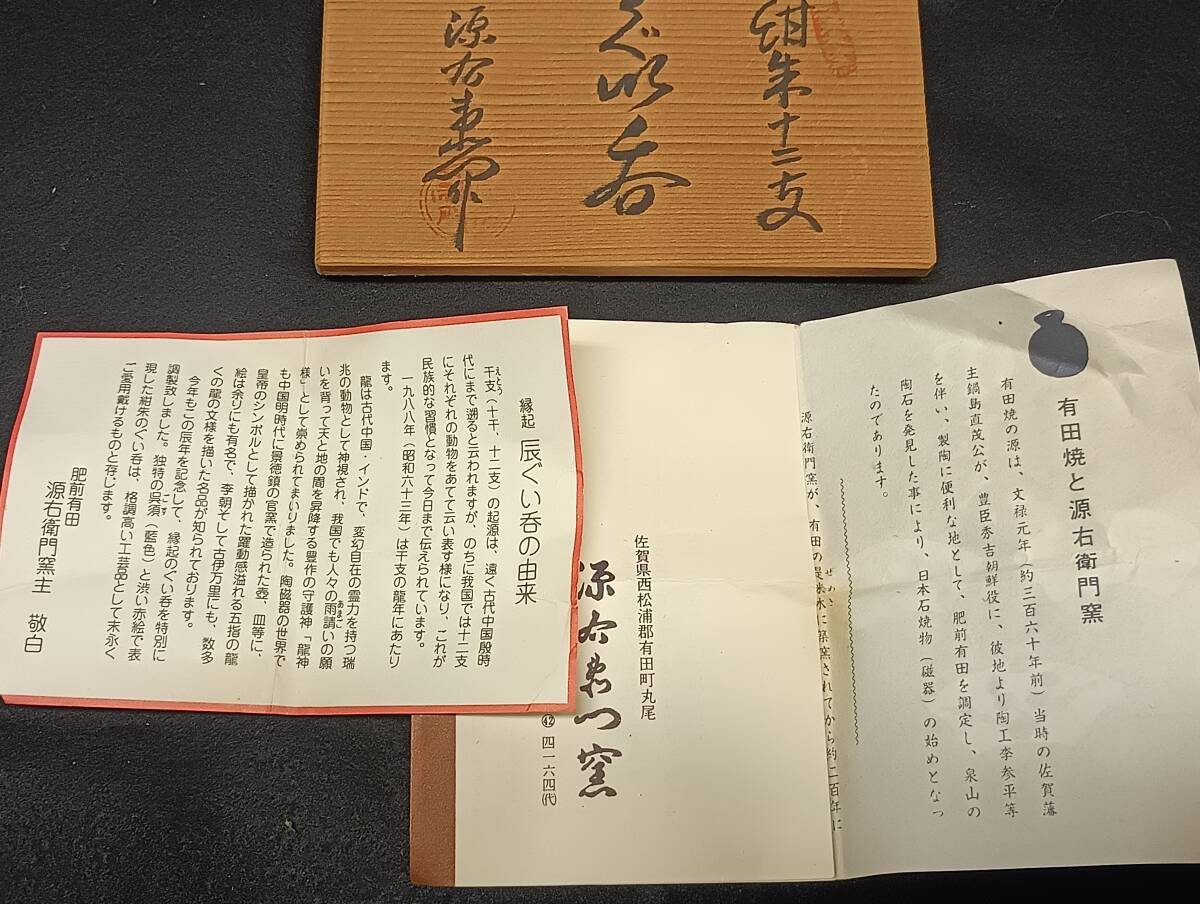 紺朱十二支
ぐい呑
源右衛門作
縁起 辰ぐい呑の由来
干支(十干、十二支)の起源は、遠く古代中国殷時
えと
代にまで遡ると云われますが、のちに我国では十二支
にそれぞれの動物をあてて云い表す様になり、これが
民族的な習慣となって今日まで伝えられています。
一九八八年(昭和六十三年)は干支の龍年にあたり
ます。
龍は古代中国・インドで、変幻自在の霊力を持つ瑞
兆の動物として神視され、我国でも人々の雨請いの願
あまご
いを背って天と地の間を昇降する豊作の守護神「龍神
様」として崇められてまいりました。陶磁器の世界で
も中国明時代に景徳鎮の官窯で造られた壺、皿等に、
皇帝のシンボルとして描かれた躍動感溢れる五指の龍
絵は余りにも有名で、李朝そして古伊万里にも、数多
くの龍の文様を描いた名品が知られております。
今年もこの辰年を記念して、縁起のぐい呑を特別に
調製致しました。独特の呉須(藍色)と渋い赤絵で表
ごす
現した紺朱のぐい呑は、格調高い工芸品として末永く
ご愛用戴けるものと存じます。
肥前有田
源右衛門窯主 敬白
有田焼と源右衛門窯
有田焼の源は、文禄元年(約三百六十年前)当時の佐賀藩
主鍋島直茂公が、豊臣秀吉朝鮮役に、彼地より陶工李参平等
を伴い、製陶に便利な地として、肥前有田を調定し、泉山の
陶石を発見した事により、日本石焼物(磁器)の始めとなっ
たのであります。
源右衛門窯が、有田の
に築窯されてから約二百年に
佐賀県西松浦郡有田町丸尾
源右衛門窯
㊷四一六四(代)